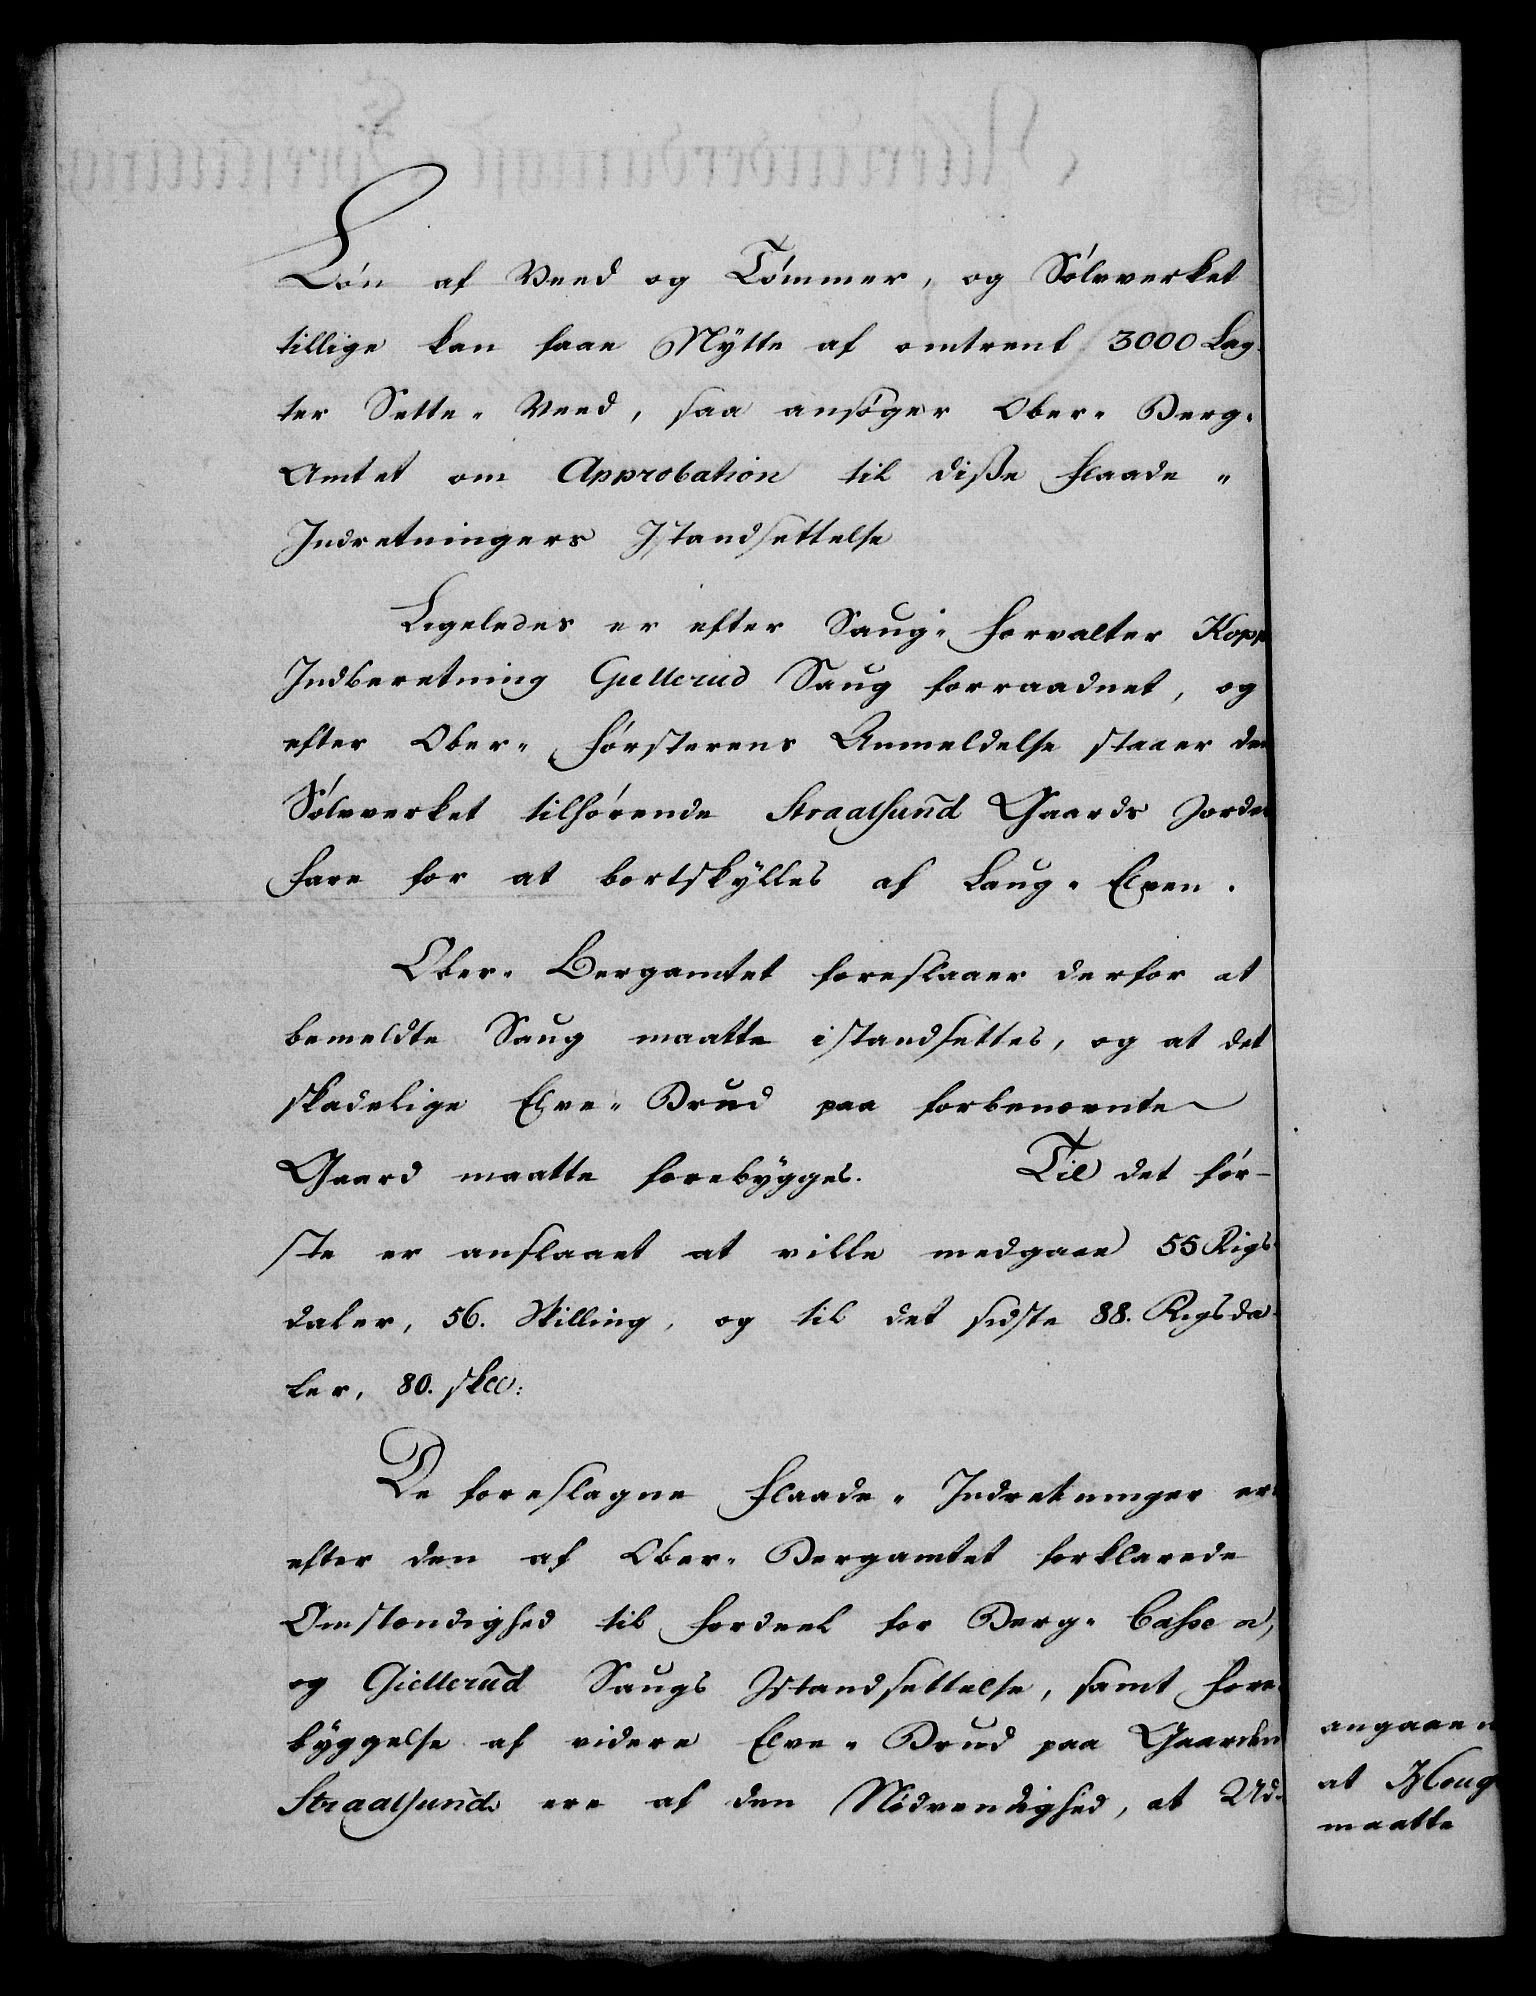 Løn af Veed og Tømmer, og Sølvverket
tillige kan faae Nytte af omtrent 3000 Lag-
ter Sette-Veed, saa ansøger Ober-Berg-
Amtet om Approbation til disse Flaade-
Indretningers Istandsettelse
Ligeledes er efter Saug-Forvalter Kopp
Indberetning Gullerud Saug forraadnet, og
efter Ober-Førsterens Anmeldelse staaer den
Sølvverket tilhørende Straalsund Gaards Jorder
Fare for at bortskylles af Laug-Elven.
Ober-Bergamtet foreslaaer derfor at
bemeldte Saug maatte istandsettes, og at det
skadelige Elve-Brud paa forbenævnte
Gaard maatte forebygges. Til det før-
ste er anslaaet at ville medgaae 55 Rigs-
daler, 56. Skilling, og til det sidste 88. Rigsda-
ler, 80. skll:
De foreslagne Flaade-Indretninger er
efter den af Ober-Bergamtet forklarede
Omstændighed til Fordeel for Berg-Cassen,
og Giellerud Saugs Istandsettelse, samt Fore-
byggelse af videre Elve-Brud paa Gaarden
Straalsund ere af den Nødvendighed, at Ud-
angaaen
at Houg
maatte